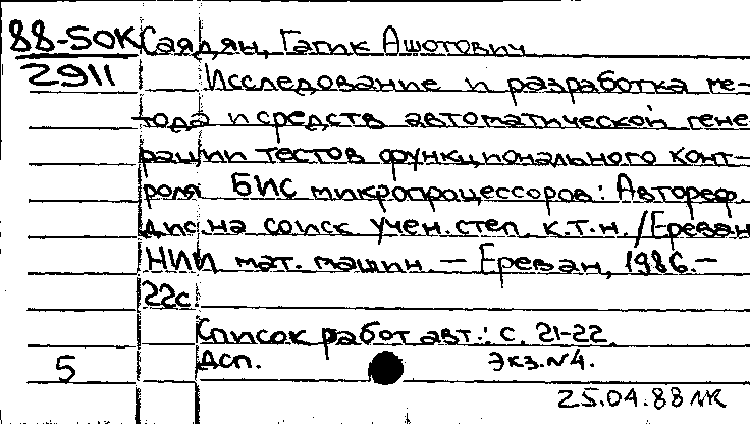 88-5OK Саядян, Гагик Ашотович
2911 Исследование и разработка ме-
тода и средств автоматической гене
рации тестов функционального конт-
роля БИС микропроцессоров: Автореф.
дис. на соиск. учен. степ. к.т.н. / Ереван
НИИ мат. машин. — Ереван, 1986. —
22с.
Список работ авт.: с. 21-22.
5 Дсп. Экз. N4.
25.04.88 NK